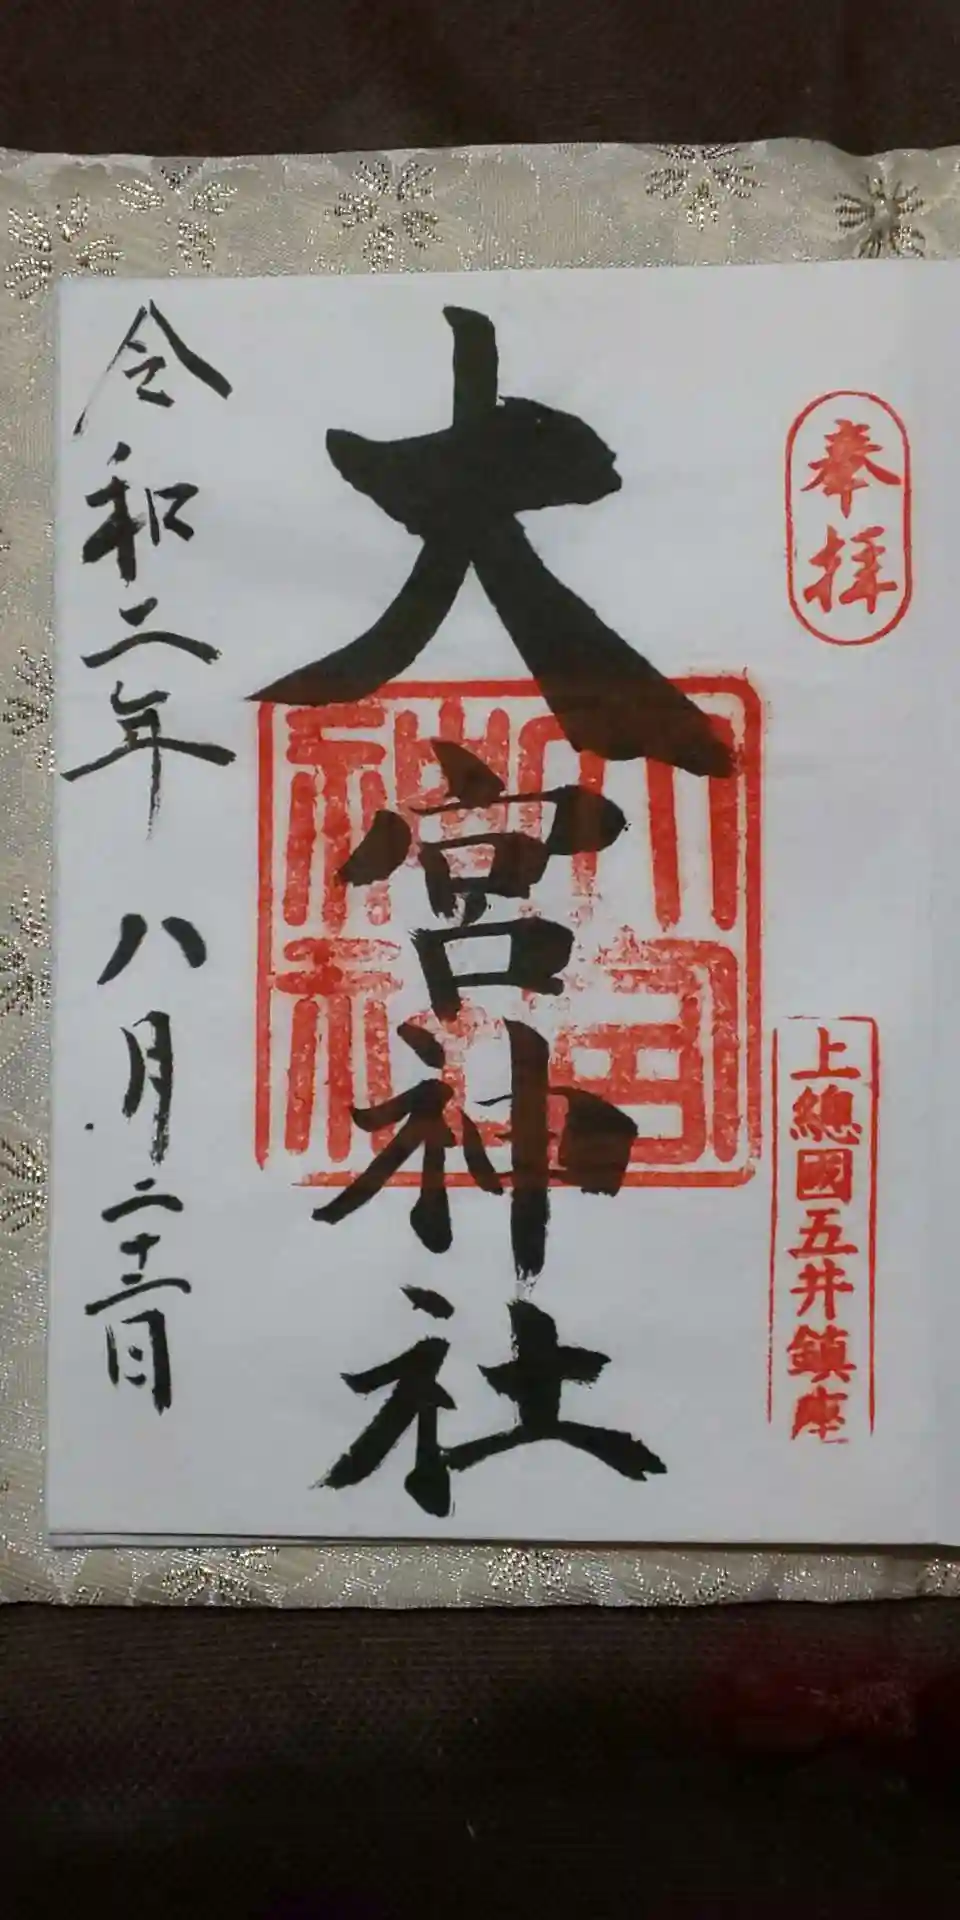 奉拝
上總國五井鎮座
大宮神社
大宮神社
令和二年 八月二十三日